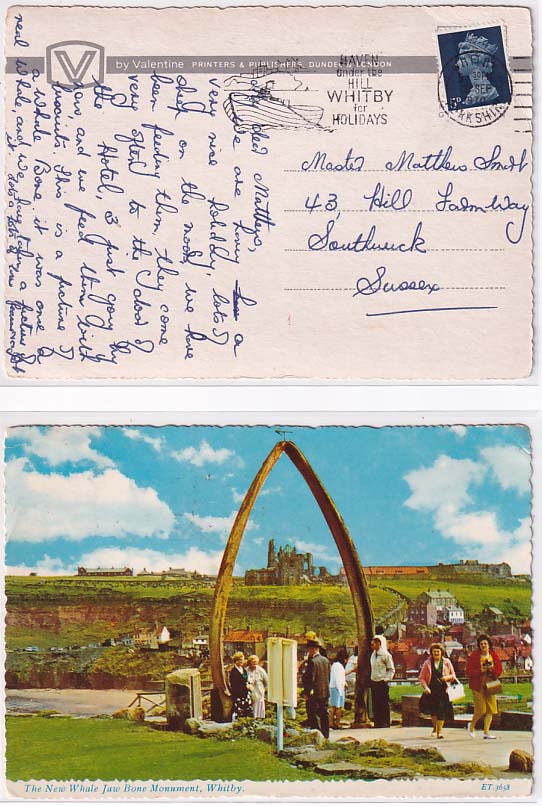 by Valentine PRINTERS & PUBLISHERS, DUNDEE & LONDON
HAVEN
under the
HILL
WHITBY
for
HOLIDAYS
dear Matthew,
We are having a
very nice holiday, lots of
on the moor, we have
been feeding them, they come
very to the door of
the Hotel, & just going by
and we feed them with
biscuits. This is a picture of
a Whale Bone, it was once a
real whale and we are a picture of
it
Master Matthew Smith
43, Hill Farm Way
Southwick
Sussex
The New Whale Jaw Bone Monument, Whitby.
ET.3658